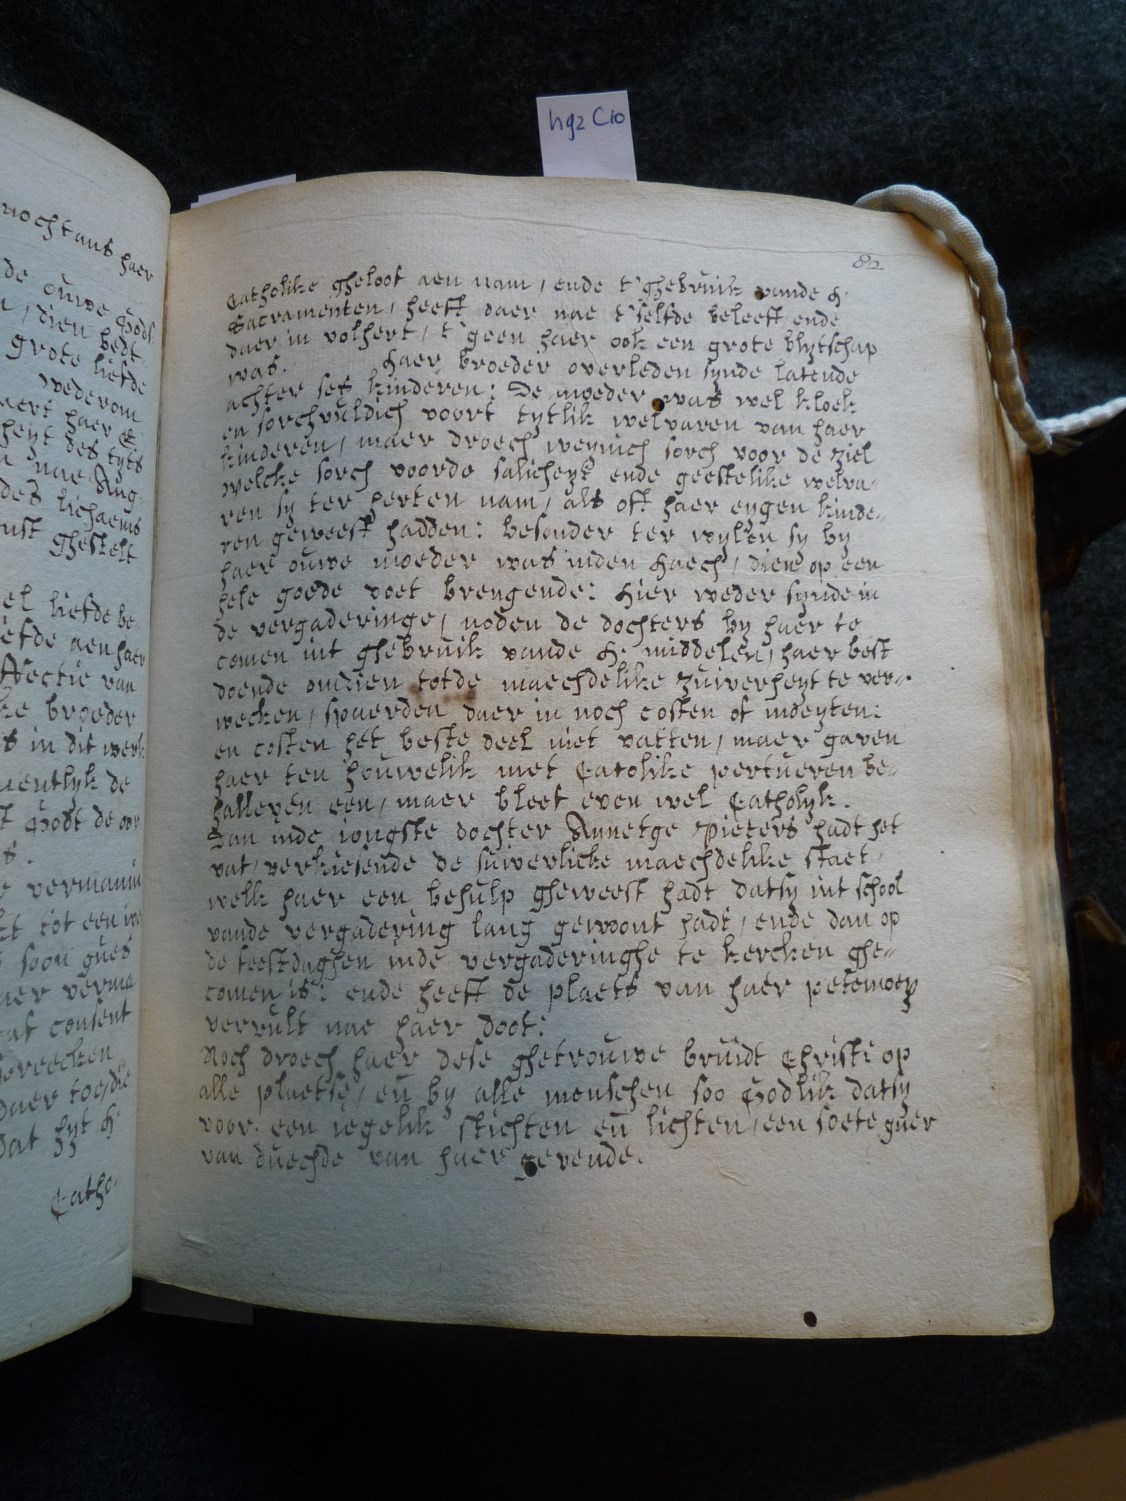 hg2 C10
nochtans haer
de ouwe Godt
dien bedt
grote liefde
wederom
heyt des tyts
des lichaems
ust ghestelt
el liefde be
iefde aen haer
ffectie van
ke broeder
s in dit werk
uentlyk de
t Godt de oor
s.
vermanin
tot een
soon
aer verma
at consent
spreecken
daer toe, die
Dat hyt h
Catho-
82
Catholike gheloof aen nam, ende t'ghebruik vande H.
Sacramenten, heeft daer nae t'selfde beleeft ende
daer in volhert, t'geen haer ook een grote blytschap
was. Haer broeder overleden synde latende
achter ses kinderen: De moeder was wel kloek
en sorchvuldich voort tytlik welvaren van haer
kinderen, maer droech weynich sorch voor de ziel
welcke sorch voorde salicheyt ende geestelike welva-
ren sy ter herten nam, als oft haer eygen kinde-
ren geweest hadden: besonder ter wylen sy by
haer ouwe moeder was inden Haech, dien op een
hele goede voet brengende: Hier weder synde in
de vergaderinge, noden de dochters by haer te
comen int ghebruik vande H. middelen, haer best
doende om dien tot de maechdelike zuverheyt te ver-
wecken, spaerden daer in noch costen of moeyten:
en costen het beste deel niet vatten, maer gaven
haer ten houwelik met Catolike pertueren be-
halleven een, maer bleef even wel Catholyk.
Dan inde iongste dochter Annetge Pieters hadt het
vat, verkiesende de suiverlicke maechdelike staet,
welk haer een behulp gheweest hadt datsy int school
vande vergadering lang gewoont hadt, ende dan op
de feestdaghen inde vergaderinghe te kercken ghe-
comen is: ende heeft de plaets van haer petemoey
vervult nae haer doot:
Noch droech haer dese ghetrouwe bruidt Christi op
alle plaetse, en by alle menschen soo Godlik datsy
voor een iegelik stichten en lichten, een soete guer
van duechde van haer gevende.